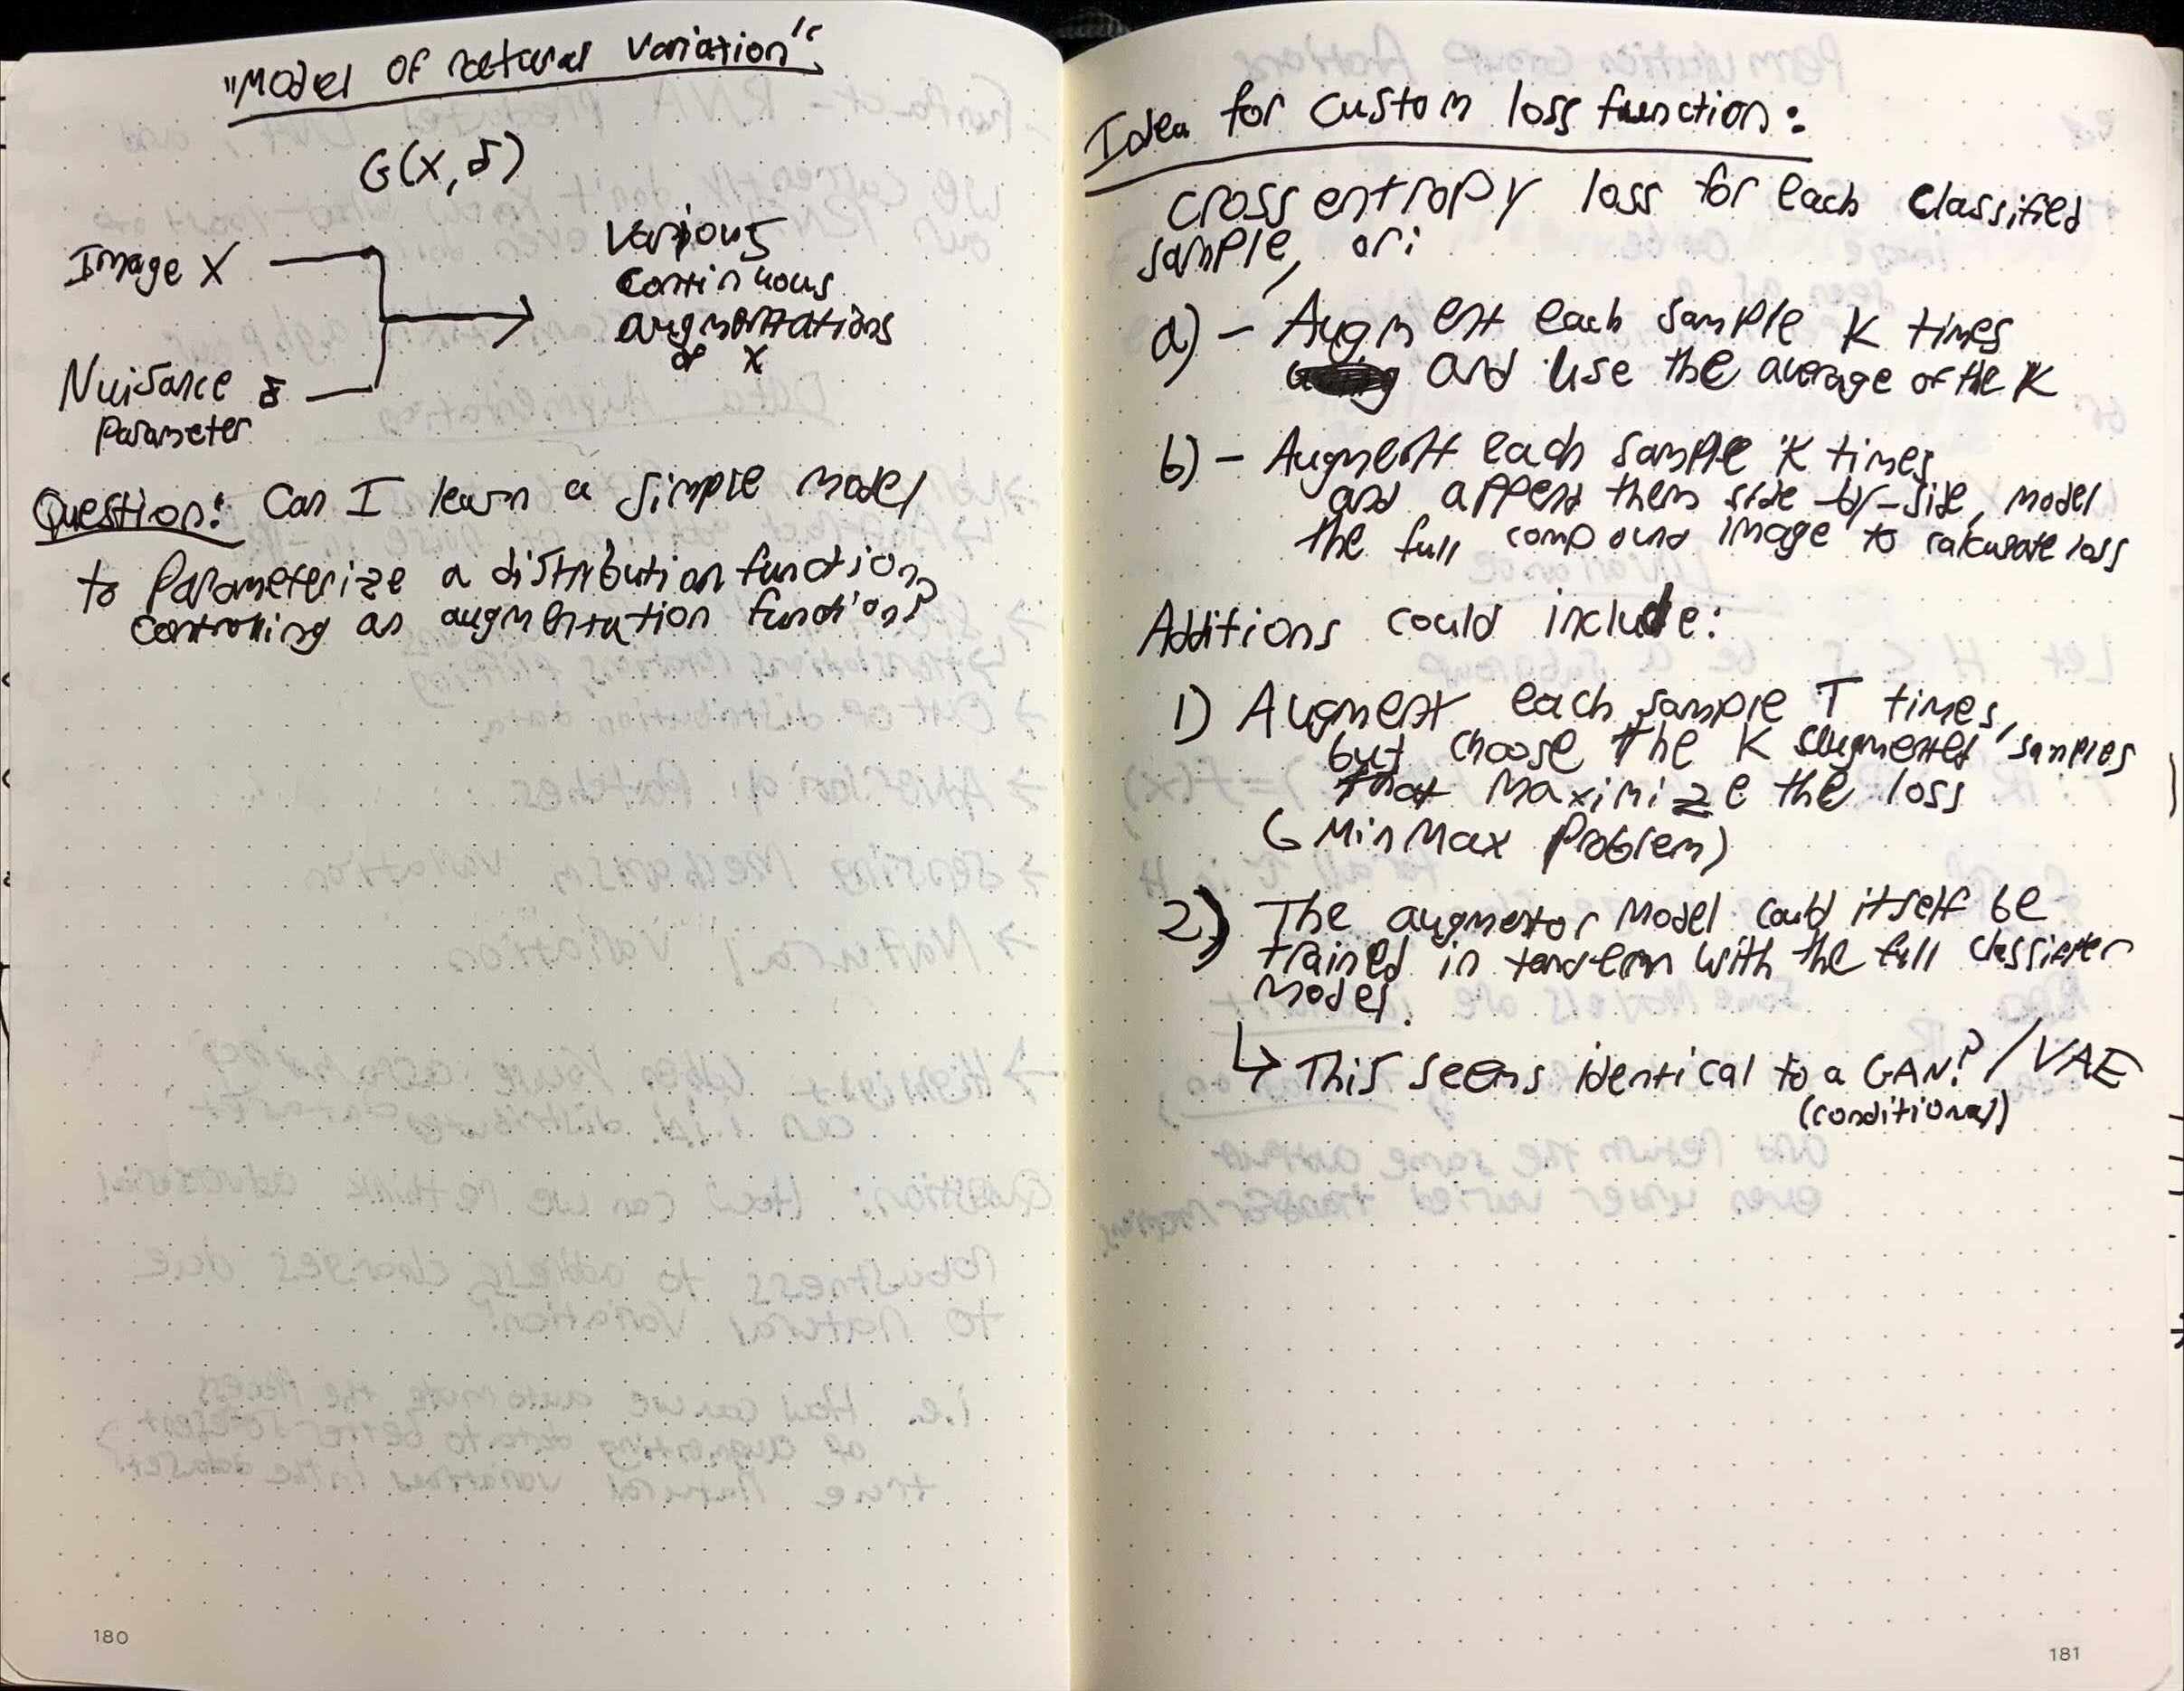 "Model of natural variation"
G(X, δ)
Image X
Various
continuous
augmentations
of X
Nuisance δ
parameter
Question: Can I learn a simple model
to parameterize a distribution function
controlling an augmentation function?
180
Idea for custom loss function:
cross entropy loss for each classified
sample, or:
a) - Augment each sample K times
and use the average of the K
b) - Augment each sample K times
and append them side-by-side, model
the full compound image to calculate loss
Additions could include:
1) Augment each sample T times,
but choose the K augmented samples
that maximize the loss
(MinMax Problem)
2) The augmentor model could itself be
trained in tandem with the full classifier
model.
↳ This seems identical to a GAN? / VAE
(conditional)
181